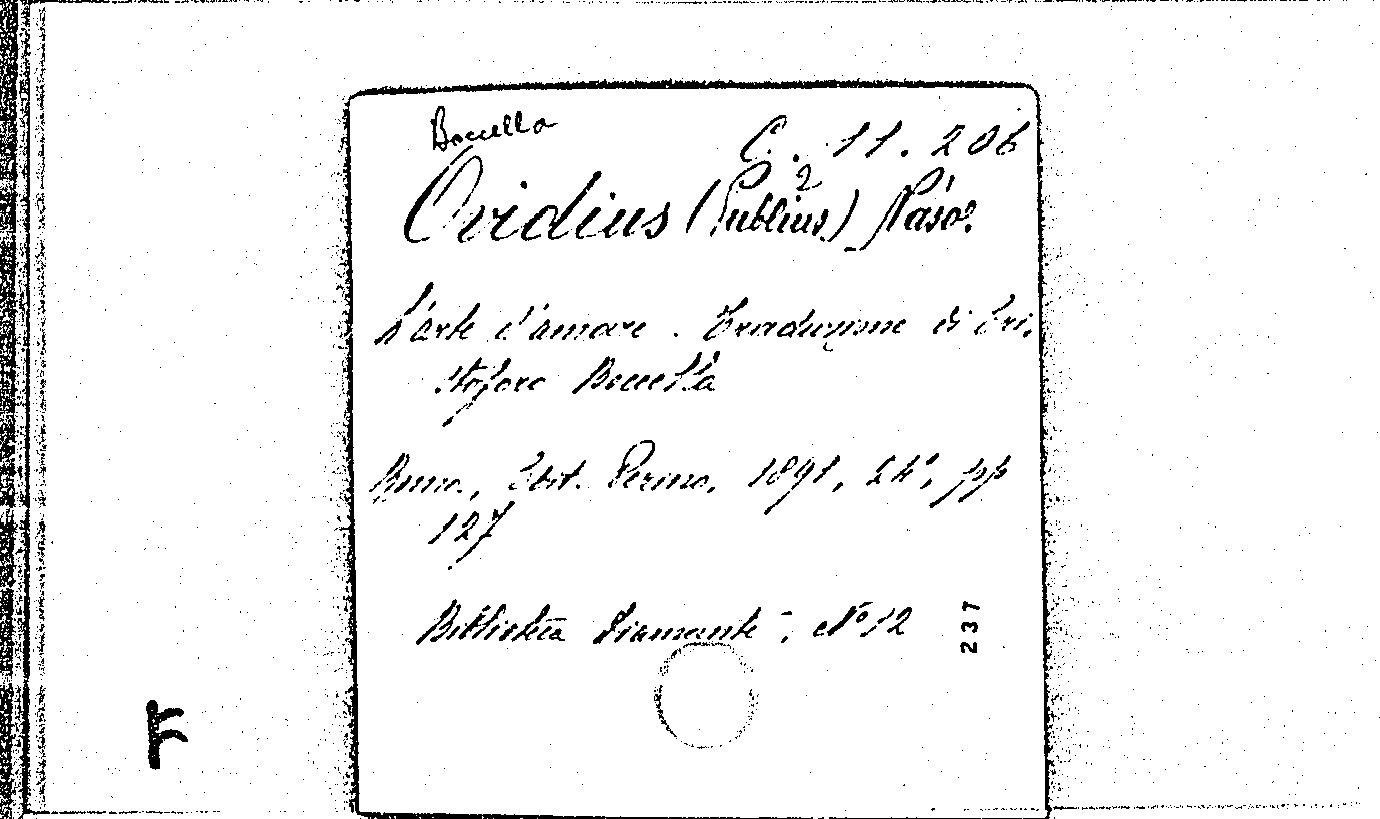 Boccella
C. 11. 206
2
Ovidius (Publius) Naso.
L'arte d'amare. Traduzione di Cri-
stoforo Boccella
Roma, Edit. Perino, 1891, 24°, pp
127
Biblioteca Diamante, N° 12
237
F